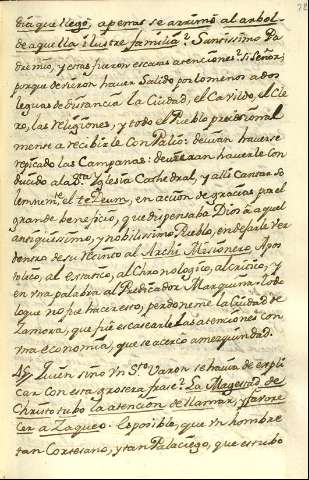 dia que llego, apenas se arrimó al arbol
de aquella ilustre familia? Santissimo Pa
dre mio, y estas fueron escasas atenciones? Si Señor;
porque devieron haver salido por lo menos a dos
leguas de distancia la Ciudad, el Cavildo, el Cle
ro, las religiones, y todo el Pueblo procesional
mente a recibirle con Palio: devian haverse
repicado las Campanas: devieran haverle con
ducido a la Sta. Yglesia Cathedral, y alli cantar so
lemnem.te el te Deum, en accion de gracias por el
grande beneficio, que dispensaba Dios à aquel
antiquissimo, y nobilissimo Pueblo, en dejarle ver
dentro de su recinto al Archi Mesionero, Apos
tolico, al Extatico, al Chronologico, al critico, y
en vna palabra al Predicador Marquina. todo
lo que no fue hacer esso, perdoneme la Ciudad de
Zamora, que fue escasearle las atenciones con
vna economia, que se acerco a mezquindad.
Quien sino vn Sto. Varon se havia de expli
car con esta grosera frase? La Magestad de
Christo tubo la atencion de llamar, y favore
cer a Zaqueo. Es posible, que vn hombre
tan Cortesano, y tan Palaciego, que estubo